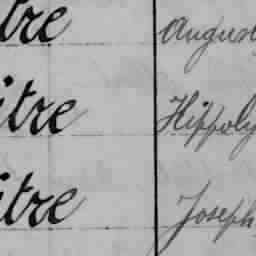 tre August
itre Hippoly
itre Joseph